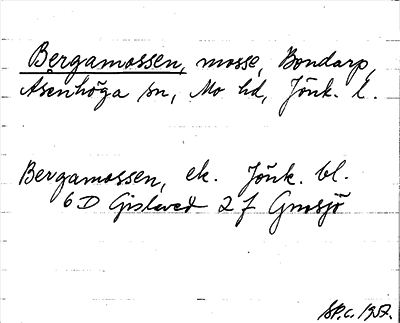 Bergamossen, mosse, Bondarp,
Åsenhöga sn, Mo hd, Jönk. l.
Bergamossen, ek. Jönk. bl.
6 D Gislaved 2 f Gnosjö
1957.